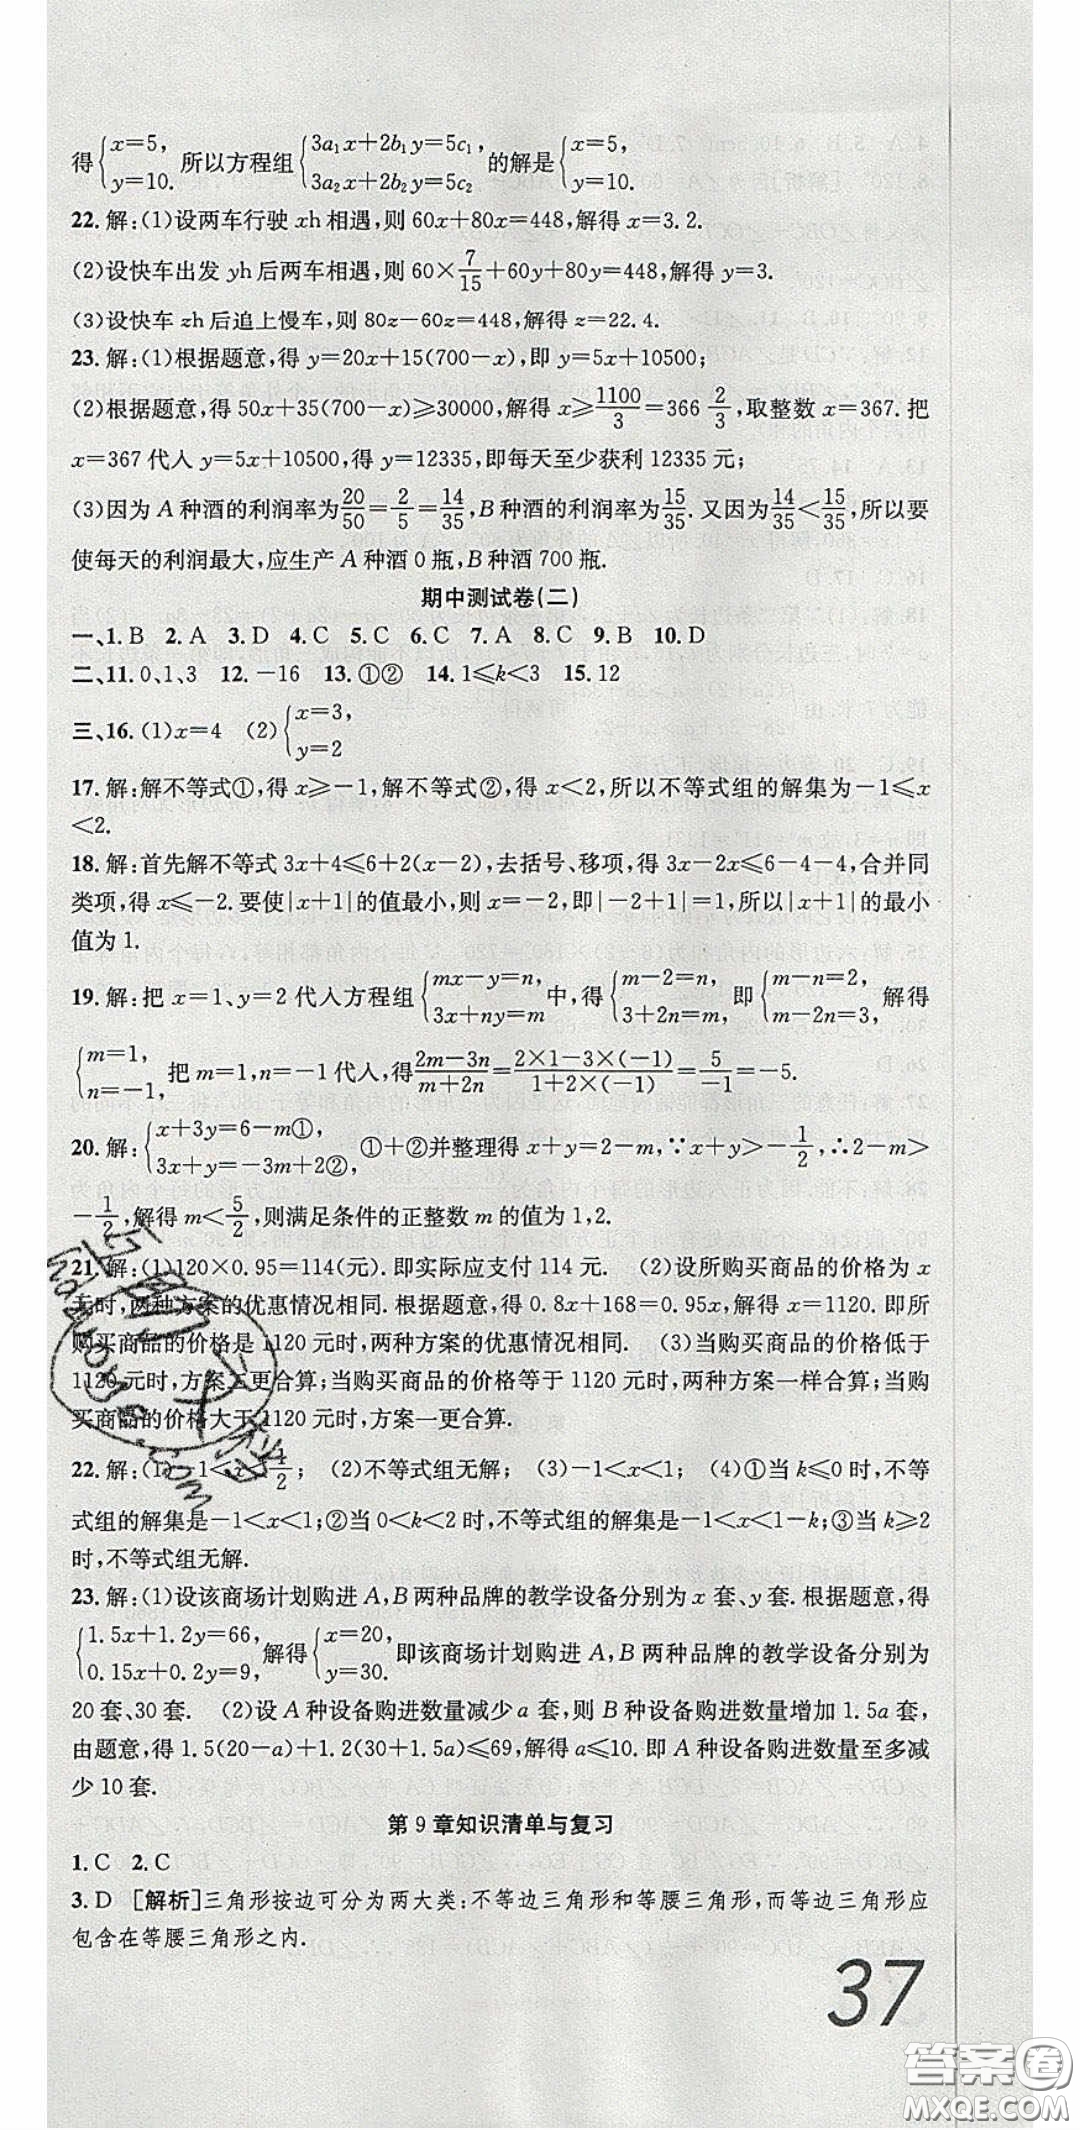 得{x=5, y=10. 所以方程组{3a₁x+2b₁y=5c₁, 3a₂x+2b₂y=5c₂ 的解是{x=5, y=10.
22.解:(1)设两车行驶 xh 相遇,则 60x+80x=448,解得 x=3.2.
(2)设快车出发 yh 后两车相遇,则 60×7/15+60y+80y=448,解得 y=3.
(3)设快车 zh 后追上慢车,则 80z-60z=448,解得 z=22.4.
23.解:(1)根据题意,得 y=20x+15(700-x),即 y=5x+10500;
(2)根据题意,得 50x+35(700-x)≥30000,解得 x≥1100/3=366 2/3,取整数 x=367.把
x=367 代人 y=5x+10500,得 y=12335,即每天至少获利 12335 元;
(3)因为 A 种酒的利润率为20/50=2/5=14/35,B 种酒的利润率为15/35.又因为14/35<15/35,所以要
使每天的利润最大,应生产 A 种酒 0 瓶,B 种酒 700 瓶.
期中测试卷(二)
一、1.B 2.A 3.D 4.C 5.C 6.C 7.A 8.C 9.B 10.D
二、11.0、1、3 12.-16 13.①② 14.1≤k<3 15.12
三、16.(1)x=4 (2){x=3, y=2
17.解:解不等式①,得 x≥-1,解不等式②,得 x<2,所以不等式组的解集为-1≤x
<2.
18.解:首先解不等式 3x+4≤6+2(x-2),去括号、移项,得 3x-2x≤6-4-4,合并同
类项,得 x≤-2.要使|x+1|的值最小,则 x=-2,即|-2+1|=1,所以|x+1|的最小
值为 1.
19.解:把 x=1、y=2 代人方程组{mx-y=n, 3x+ny=m 中,得{m-2=n, 3+2n=m, 即{m-n=2, m-2n=3, 解得
{m=1, n=-1, 把 m=1,n=-1 代人,得(2m-3n)/(m+2n)=(2×1-3×(-1))/(1+2×(-1))=5/-1=-5.
20.解:{x+3y=6-m①, 3x+y=-3m+2②, ①+②并整理得 x+y=2-m,∵x+y>-1/2,∴2-m>
-1/2,解得 m<5/2,则满足条件的正整数 m 的值为 1,2.
21.解:(1)120×0.95=114(元).即实际应支付 114 元. (2)设所购买商品的价格为 x
元时,两种方案的优惠情况相同.根据题意,得 0.8x+168=0.95x,解得 x=1120.即所
购买商品的价格是 1120 元时,两种方案的优惠情况相同. (3)当购买商品的价格低于
1120 元时,方案二更合算;当购买商品的价格等于 1120 元时,两种方案一样合算;当购
买商品的价格大于 1120 元时,方案一更合算.
22.解:(1)-1<x<1/2; (2)不等式组无解; (3)-1<x<1; (4)①当 k≤0 时,不等
式组的解集是-1<x<1;②当 0<k<2 时,不等式组的解集是-1<x<1-k;③当 k≥2
时,不等式组无解.
23.解:(1)设该商场计划购进 A,B 两种品牌的教学设备分别为 x 套、y 套.根据题意,得
{1.5x+1.2y=66, 0.15x+0.2y=9, 解得{x=20, y=30. 即该商场计划购进 A,B 两种品牌的教学设备分别为
20 套、30 套. (2)设 A 种设备购进数量减少 a 套,则 B 种设备购进数量增加 1.5a 套,
由题意,得 1.5(20-a)+1.2(30+1.5a)≤69,解得 a≤10.即 A 种设备购进数量至多减
少 10 套.
第 9 章知识清单与复习
1.C 2.C
3.D [解析]三角形按边可分为两大类:不等边三角形和等腰三角形,而等边三角形应
包含在等腰三角形之内.
37
答案圈
MXQE.COM